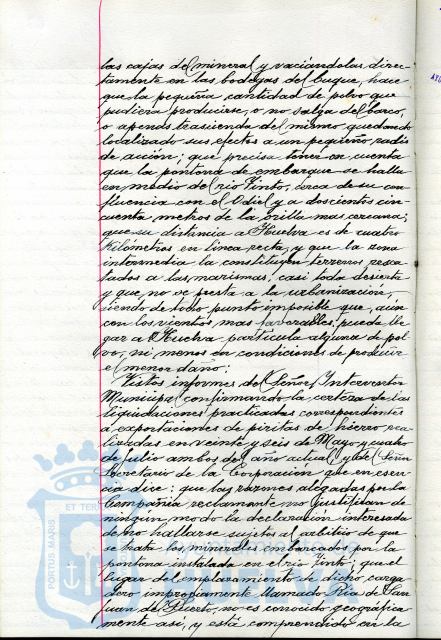 las cajas de mineral y vaciándolas direc-
tamente en las bodegas del buque, hace
que la pequeña cantidad de polvo que
pudiera producirse, o no salga del barco,
o apenas trascienda del mismo quedando
localizado sus efectos a un pequeño radio
de acción; que precisa tener en cuenta
que la pontona de embarque se halla
en medio del río Tinto, cerca de su con-
fluencia con el Odiel y a doscientos cin-
cuenta metros de la orilla mas cercana;
que su distancia a Huelva es de cuatro
kilómetros en línea recta, y que la zona
intermedia la constituyen terrenos resca-
tados a las marismas, casi toda desierta
y que no se presta a la urbanización,
siendo de todo punto imposible que, aún
con los vientos mas favorables, pueda lle-
gar a Huelva partícula alguna de pol-
vo, ni menos en condiciones de producir
el menor daño:
Vistos informes del Señor Interventor
Municipal confirmando la certeza de las
liquidaciones practicadas correspondientes
a exportaciones de piritas de hierro rea-
lizadas en veinte y seis de Mayo y cuatro
de Julio ambos del año actual, y del Señor
Secretario de la Corporación que en esen-
cia dice: que las razones alegadas por la
Compañía reclamante no justifican de
ningún modo la declaración interesada
de no hallarse sujetos al arbitrio de que
se trata los minerales embarcados por la
pontona instalada en el río Tinto; que el
lugar del emplazamiento de dicho carga-
dero impropiamente llamado Ría de San
Juan del Puerto, no es conocido geográfica-
mente así, y está comprendido en la
PORTUS MARIS
ET TER